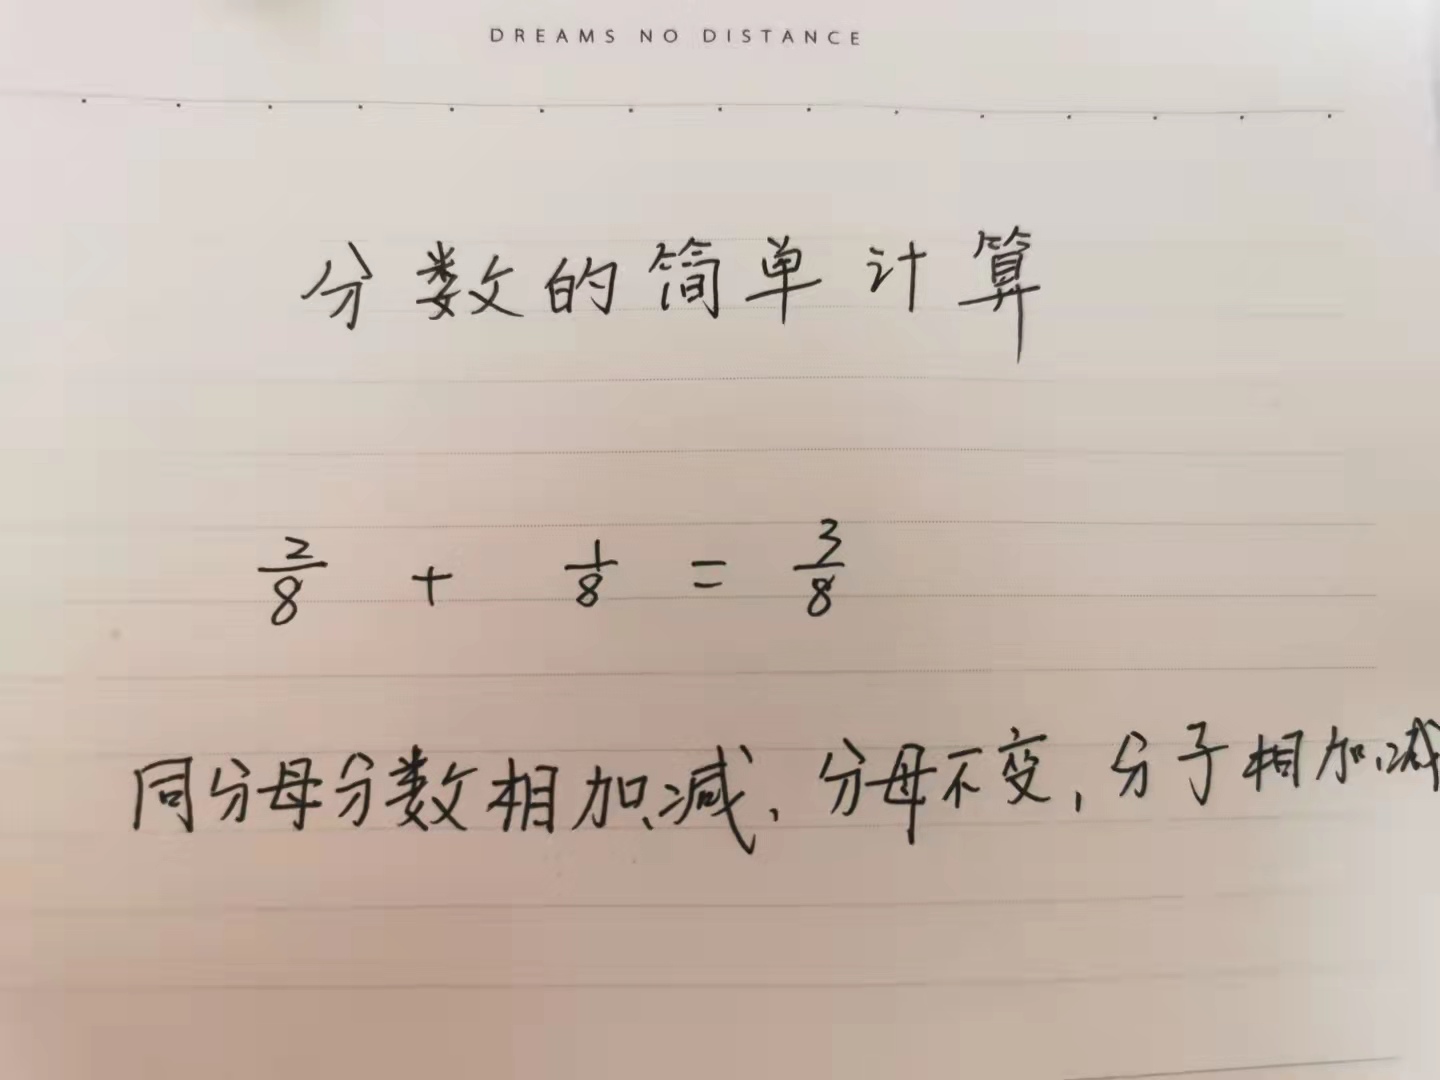 DREAMS NO DISTANCE
分数的简单计算
2/8 + 1/8 = 3/8
同分母分数相加减、分母不变，分子相加减